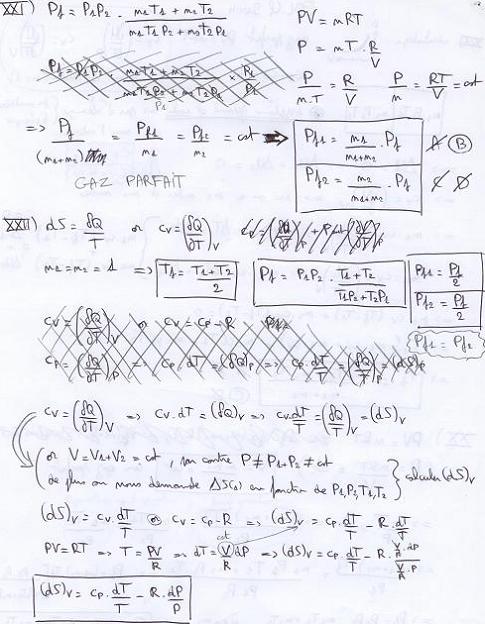 XXI) Pf = P1P2 . (m1T1 + m2T2)/(m1T1P2 + m2T2P1)
PV = mRT
P = mT.R/V
P/(m.T) = R/V P/m = RT/V = cst
=> Pf/(m1+m2) = Pf1/m1 = Pf2/m2 = cst => Pf1 = m1/(m1+m2) . Pf (B)
Pf2 = m2/(m1+m2) . Pf
GAZ PARFAIT
XXII) dS = δQ/T or cv = (δQ/∂T)V
m1 = m2 = 1 => Tf = (T1+T2)/2 Pf = P1P2 . (T1+T2)/(T1P2+T2P1) Pf1 = Pf/2
Pf2 = Pf/2
Pf1 = Pf2
cv = (δQ/∂T)V or cv = cp - R
cp = (δQ/∂T)P => cp.dT = (δQ)P => cp.dT/T = (δQ/T)P = (dS)P
cv = (δQ/∂T)V => cv.dT = (δQ)V => cv.dT/T = (δQ/T)V = (dS)V
or V = V1+V2 = cst, en contre P ≠ P1+P2 ≠ cst
de plus on nous demande ΔS(1) en fonction de P1,P2,T1,T2 } calculer (dS)V
(dS)V = cv.dT/T or cv = cp - R => (dS)V = cp.dT/T - R.dT/T
PV = RT => T = PV/R => dT = V/R dP => (dS)V = cp.dT/T - R.(V/R .dP)/(V/R .P)
cst
(dS)V = cp.dT/T - R.dP/P